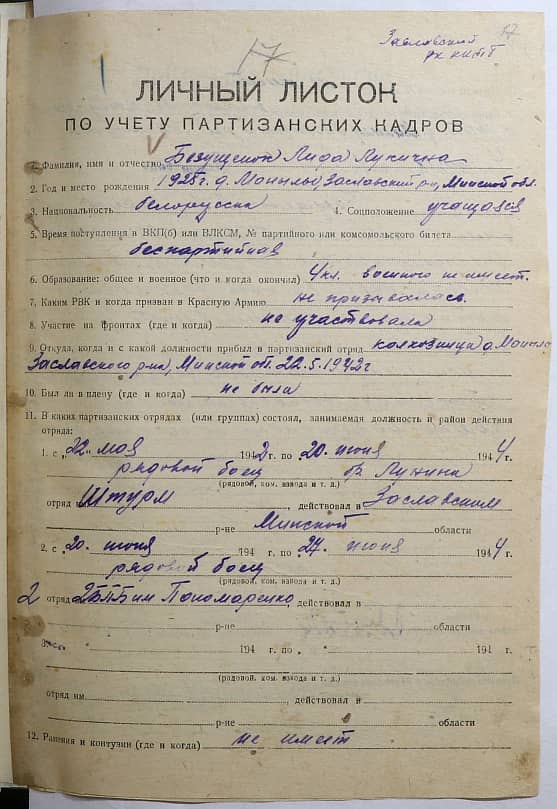 17
17
Заславский
рк ККТТ
ЛИЧНЫЙ ЛИСТОК
ПО УЧЕТУ ПАРТИЗАНСКИХ КАДРОВ
1. Фамилия, имя и отчество Лида Лукична
2. Год и место рождения 1925 г. д. Заславский р-н, Минской обл.
3. Национальность белорусска 4. Соцположение учащаяся
5. Время поступления в ВКП(б) или ВЛКСМ, № партийного или комсомольского билета
беспартийная
6. Образование: общее и военное (что и когда окончил) 4 кл. военного не имеет.
7. Каким РВК и когда призван в Красную Армию не призывалась.
8. Участие на фронтах (где и когда) не участвовала
9. Откуда, когда и с какой должности прибыл в партизанский отряд колхозница д.
Заславского р-на, Минской об. 22.5.1942 г
10. Был ли в плену (где и когда) не была
11. В каких партизанских отрядах (или группах) состоял, занимаемая должность и район действия
отряда:
1. с „22" мая 1942 г. по „20. июня 1944 г.
рядовой боец Лунина
(рядовой, ком. взвода и т. д.)
отряд Штурм, действовал в Заславским
р-не Минской области
2. с „20. июня 194 г. по „27. июня 1944 г.
рядовой боец
(рядовой, ком. взвода и т. д.)
2 отряд 2БПБ им Пономаренко, действовал в
р-не области
194 г. по „ 194 г.
(рядовой, ком. взвода и т. д.)
отряд им. , действовал в
р-не области
12. Ранения и контузии (где и когда) не имеет